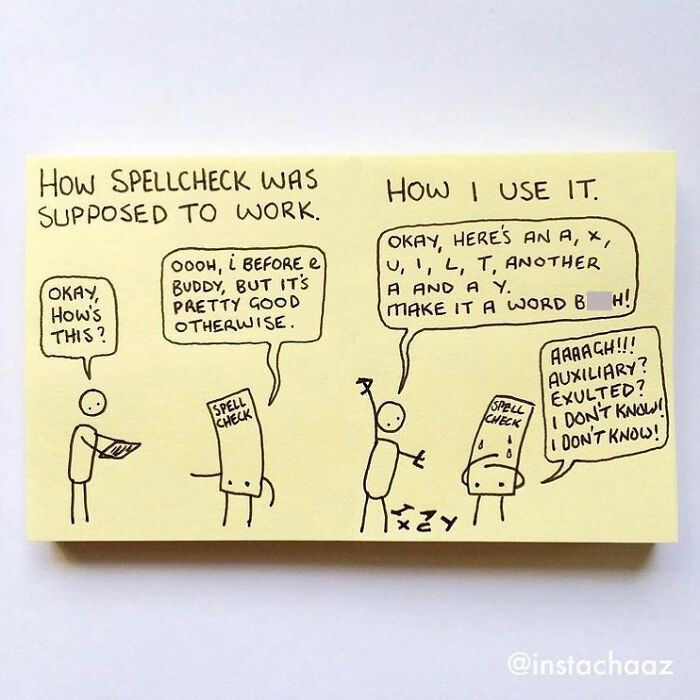 HOW SPELLCHECK WAS
SUPPOSED TO WORK.
OKAY,
HOW'S
THIS?
OOOH, i BEFORE e
BUDDY, BUT IT'S
PRETTY GOOD
OTHERWISE.
SPELL
CHECK
HOW I USE IT.
OKAY, HERE'S AN A, X,
U, I, L, T, ANOTHER
A AND A Y.
MAKE IT A WORD B H!
AAAAGH!!!
AUXILIARY?
EXULTED?
I DON'T KNOW!
I DON'T KNOW!
SPELL
CHECK
@instachaaz